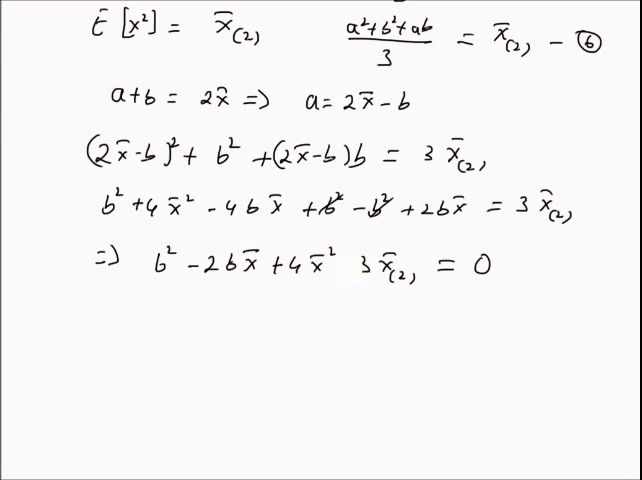 E[x²] = x̄₍₂₎   (a²+b²+ab)/3 = x̄₍₂₎ - ⑥
a+b = 2x̄ => a = 2x̄ - b
(2x̄-b)² + b² + (2x̄-b)b = 3x̄₍₂₎
b² + 4x̄² - 4bx̄ + b² - b² + 2bx̄ = 3x̄₍₂₎
=> b² - 2bx̄ + 4x̄² 3x̄₍₂₎ = 0